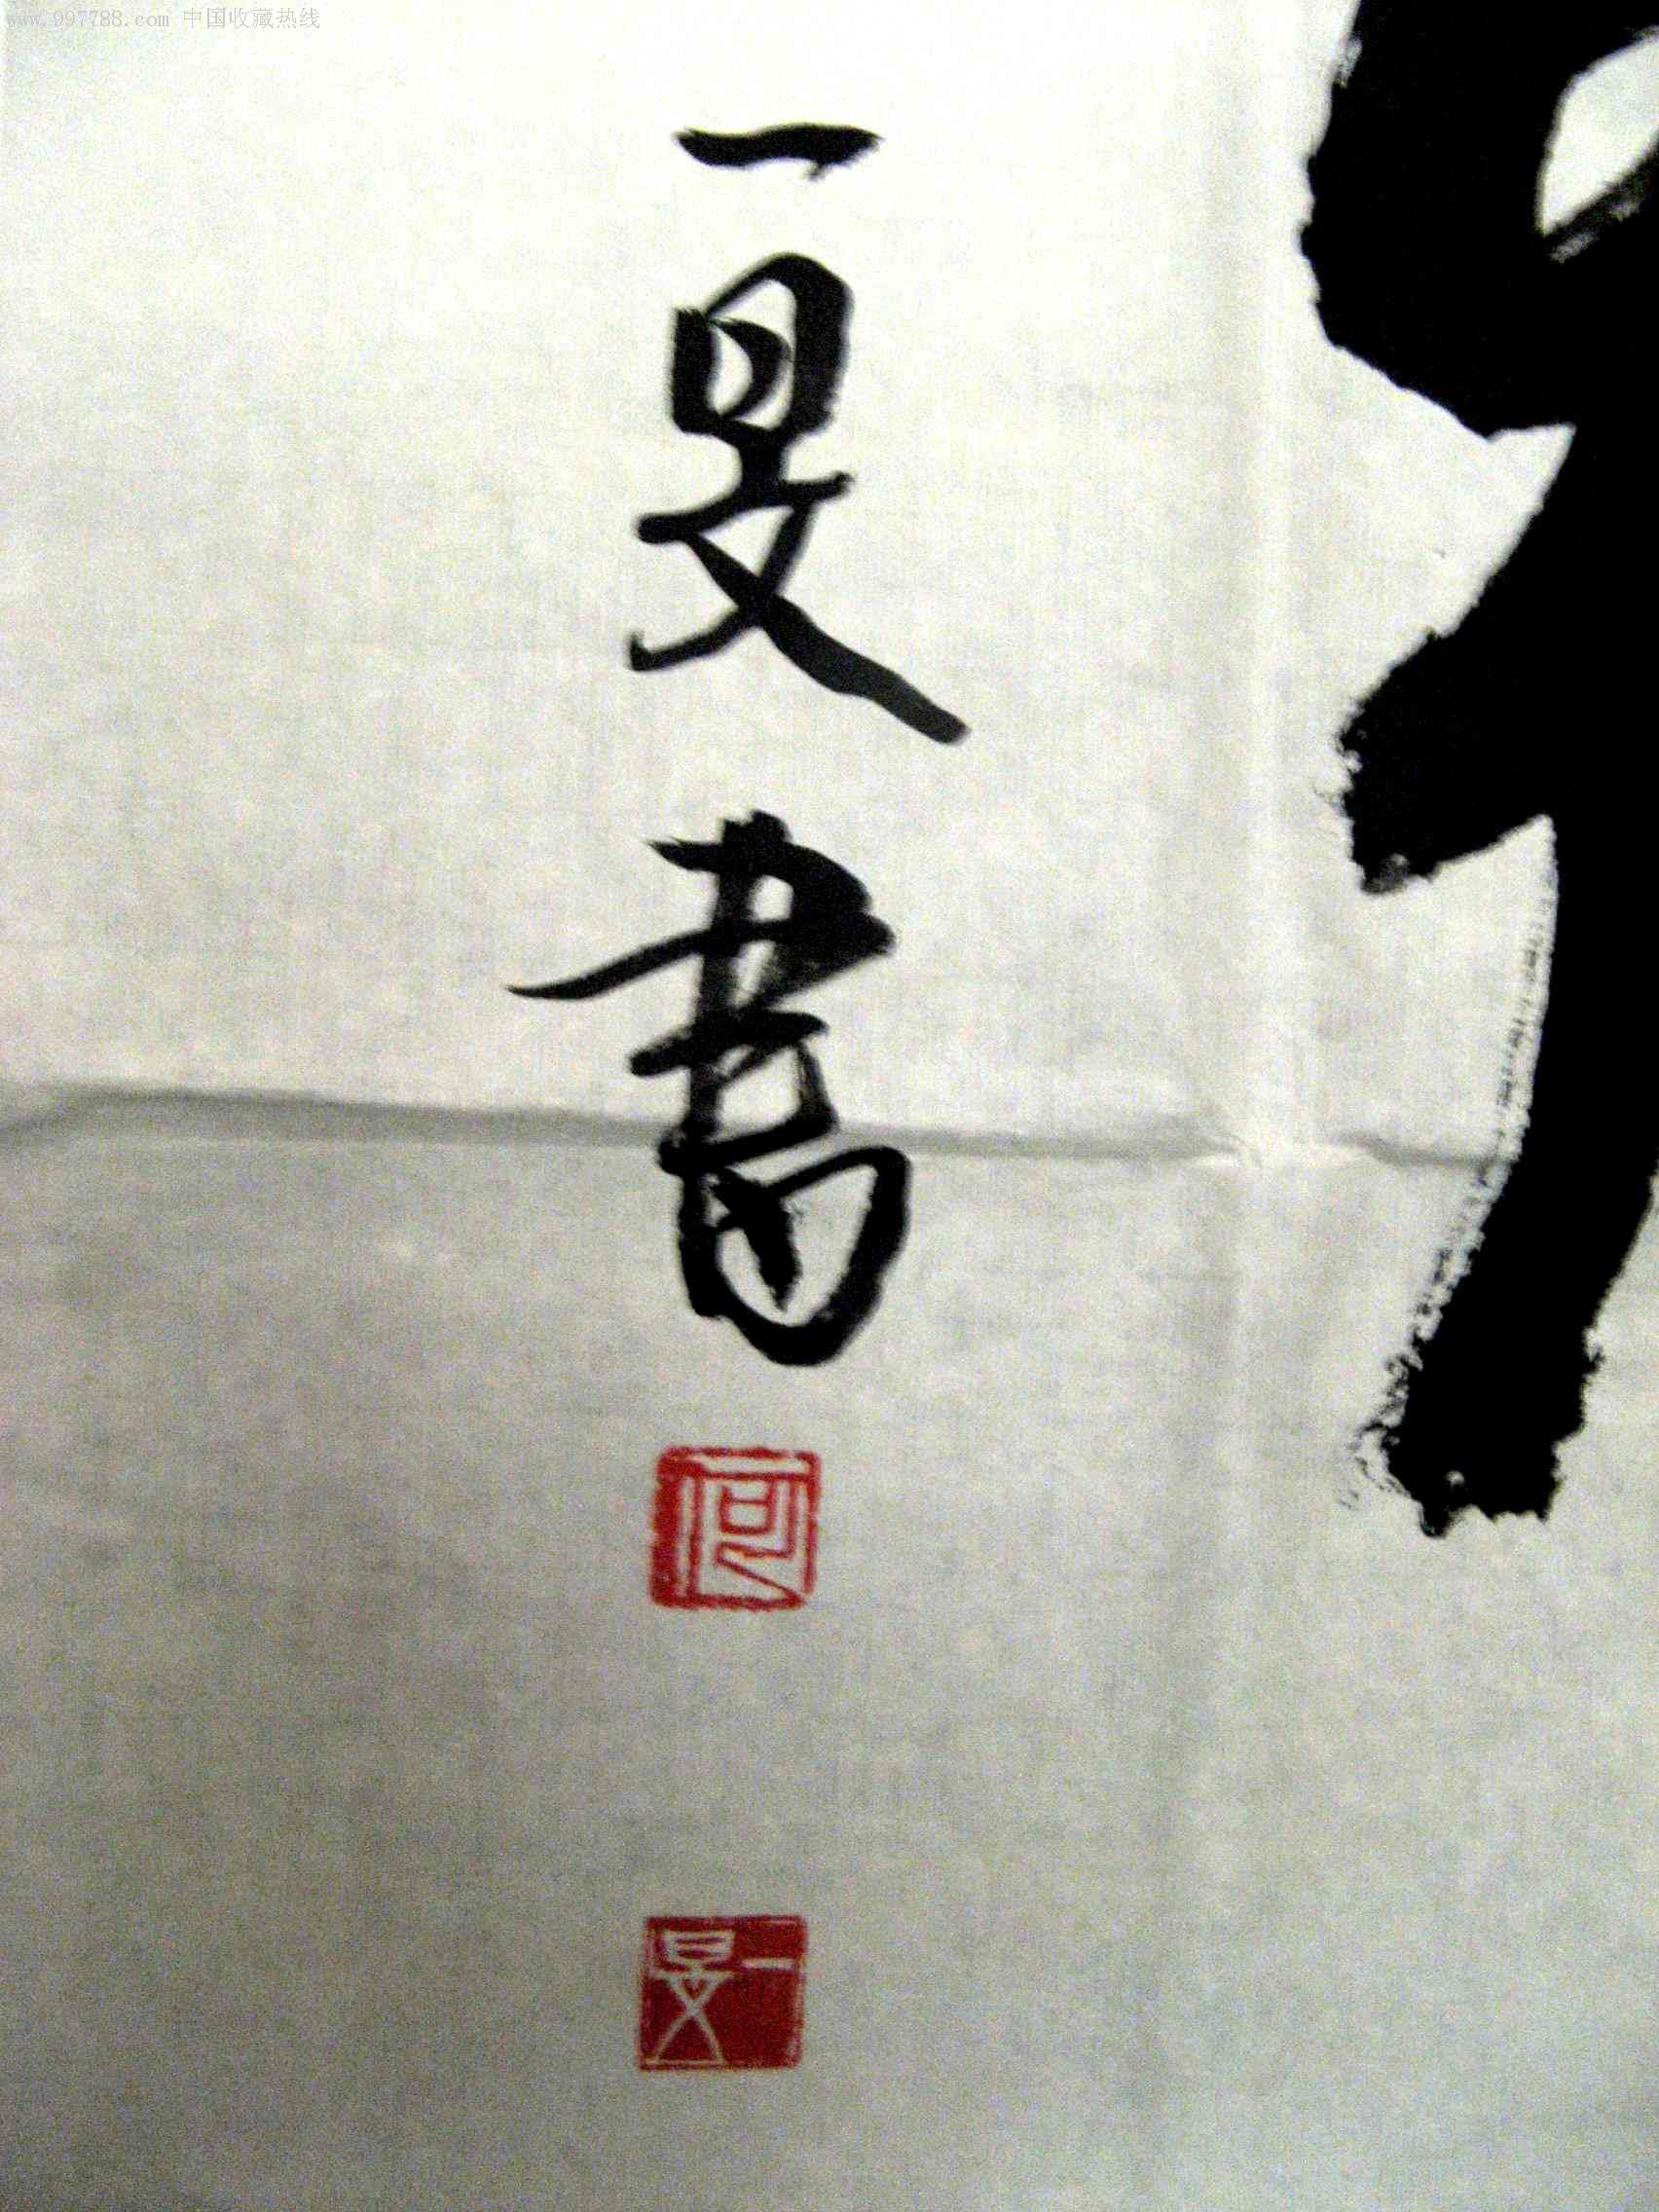 www.997788.com 中国收藏热线
一旻書
何
一旻